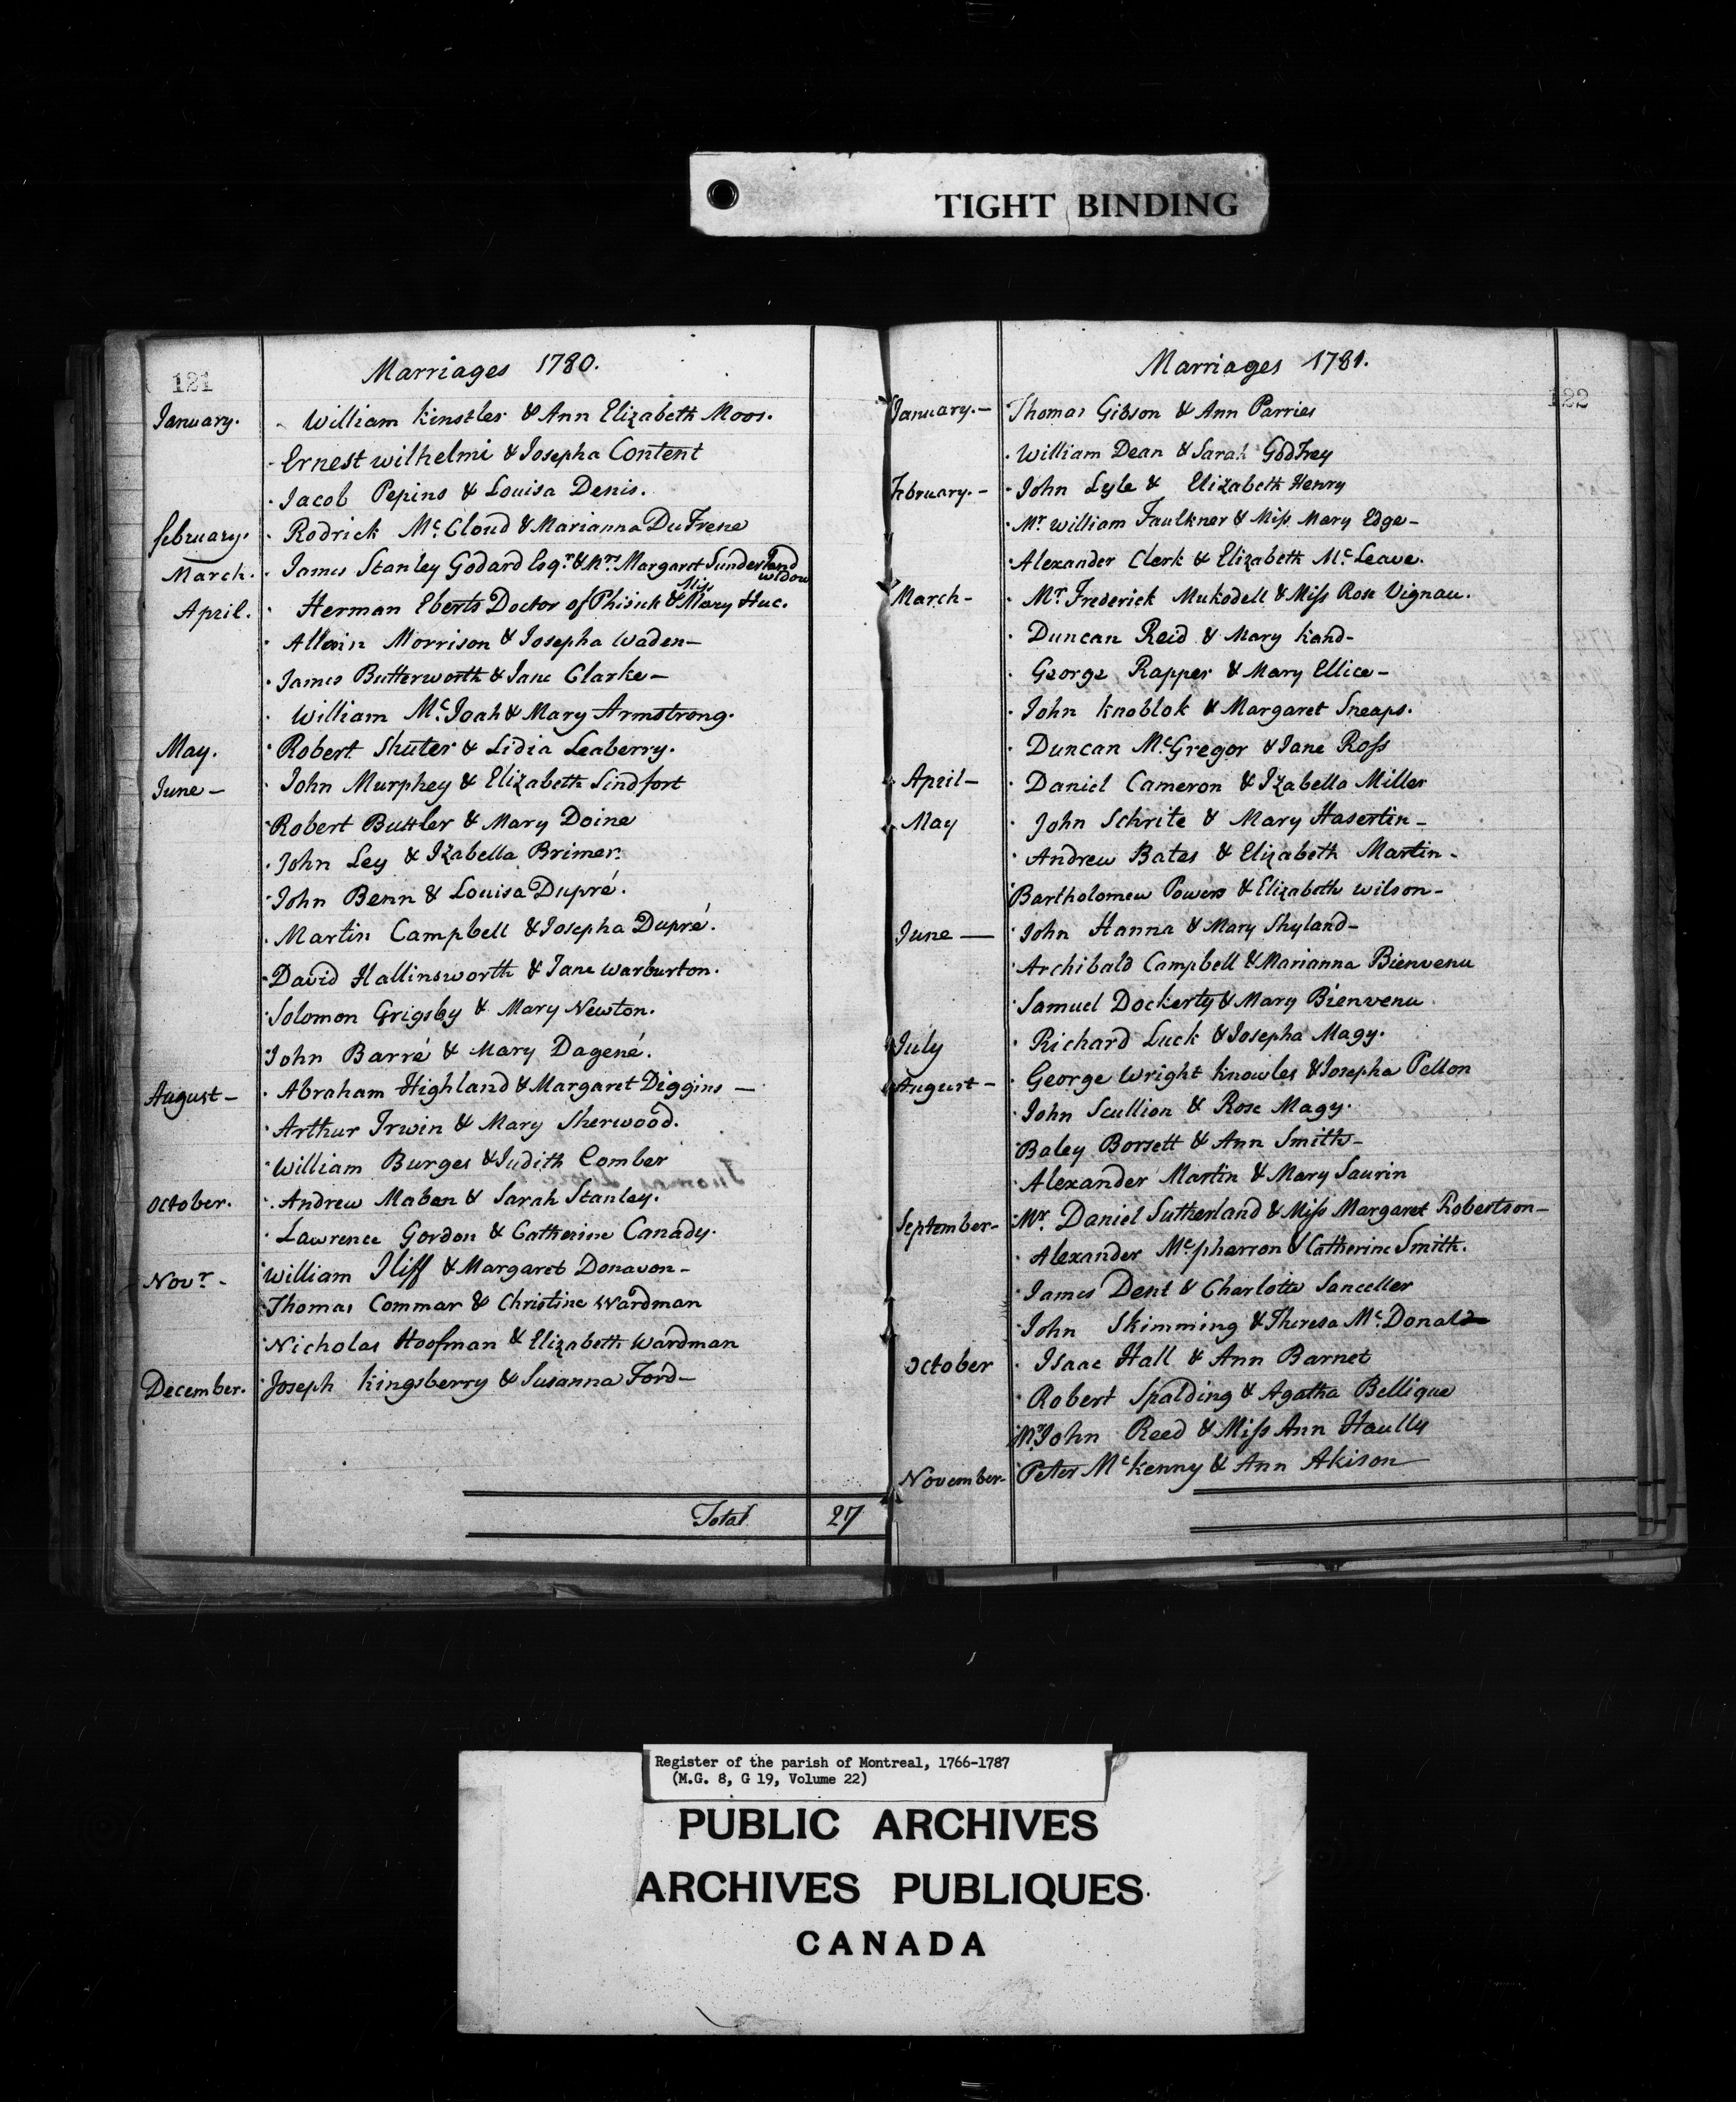 TIGHT BINDING
121
Marriages 1780.
January. William Kinstler & Ann Elizabeth Moos.
Ernest wilhelmi & Josepha Content
Jacob Pepins & Louisa Denis.
february. Rodrick Mc. Cloud & Marianna DuFrene
March. James Stanley Godard Esqr. & Mrs Margaret Sunderland
widow
Miss
April. Herman Eberts Doctor of Phisick & Mary Huc.
Allwin Morrison & Josepha Waden-
James Butterworth & Jane Clarke-
William Mc. Joah & Mary Armstrong.
May. Robert Shuter & Lidia Leaberry.
June- John Murphey & Elizabeth Lindfort
Robert Buttler & Mary Doine
John Ley & Izabella Brimer.
John Benn & Louisa Dupré.
Martin Campbell & Josepha Dupré.
David Hallinsworth & Jane Warburton.
Solomon Grigsby & Mary Newton.
John Barré & Mary Dagené.
August- Abraham Highland & Margaret Diggins-
Arthur Irwin & Mary Sherwood.
William Burges & Judith Comber
October. Andrew Maben & Sarah Stanley.
Lawrence Gordon & Catherine Canady.
Novr- William Iliff & Margaret Donavon-
Thomas Commar & Christine Wardman
Nicholas Hoofman & Elizabeth Wardman
December. Joseph Kingsberry & Susanna Ford-
Total 27
122
Marriages 1781.
January.- Thomas Gibson & Ann Parries
William Dean & Sarah Godfrey
February.- John Lyle & Elizabeth Henry
Mr William Faulkner & Miss Mary Edge-
Alexander Clerk & Elizabeth Mc. Leave.
March- Mr. Frederick Mukodell & Miss Rose Vignau.
Duncan Reid & Mary Kand-
George Rapper & Mary Ellice-
John Knoblok & Margaret Sneaps.
Duncan Mc.Gregor & Jane Ross
April- Daniel Cameron & Izabella Miller
May John Schrite & Mary Hasertin-
Andrew Bates & Elizabeth Martin-
Bartholomew Powers & Elizabeth Wilson-
June- John Hanna & Mary Shyland-
Archibald Campbell & Marianna Bienvenu
Samuel Dockerty & Mary Bienvenu
July Richard Luck & Josepha Magy.
August- George Wright Knowles & Josepha Pelton
John Scullion & Rose Magy.
Baley Borsett & Ann Smith-
Alexander Martin & Mary Saurin
September- Mr. Daniel Sutherland & Miss Margaret Robertson-
Alexander Mcpharron & Catherine Smith.
James Dent & Charlotte Sanceller
John Skimming & Theresa Mc. Donald
October Isaac Hall & Ann Barnet
Robert Spalding & Agatha Bellique
Mr. John Reed & Miss Ann Haully
November- Peter Mc kenny & Ann Akison
Register of the parish of Montreal, 1766-1787
(M.G. 8, G 19, Volume 22)
PUBLIC ARCHIVES
ARCHIVES PUBLIQUES
CANADA